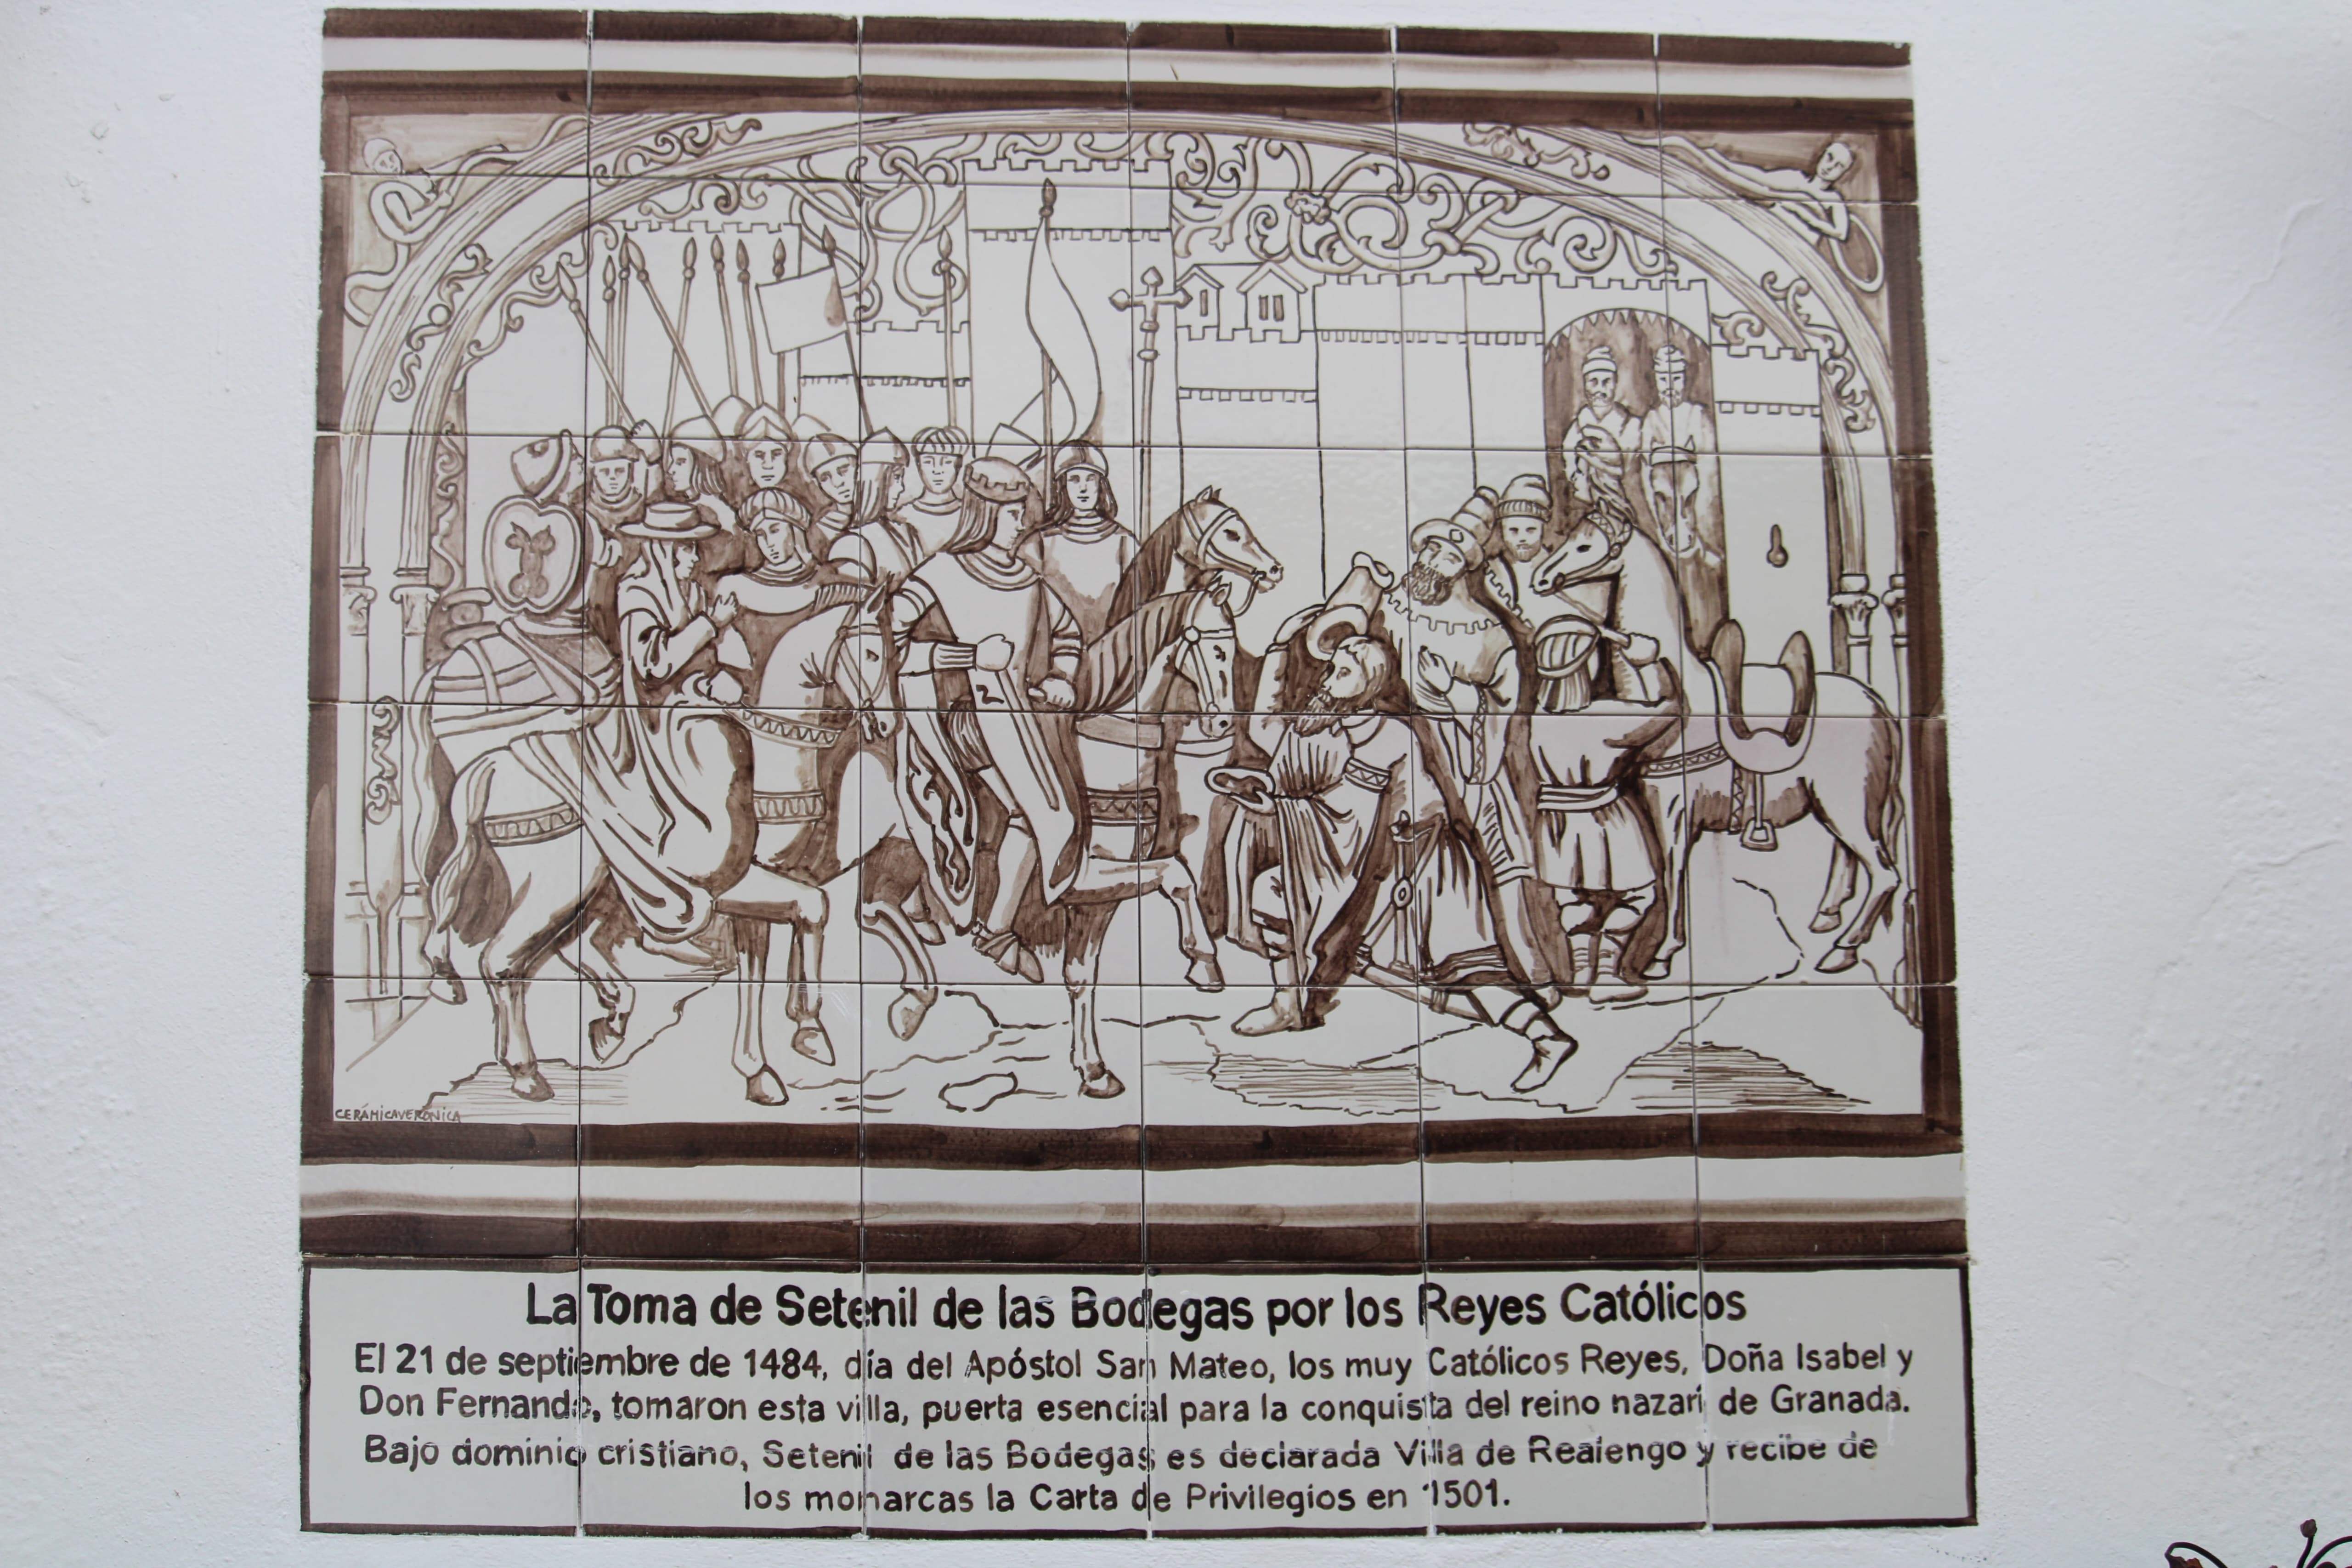 CERÁMICAVERÓNICA
La Toma de Setenil de las Bodegas por los Reyes Católicos
El 21 de septiembre de 1484, día del Apóstol San Mateo, los muy Católicos Reyes, Doña Isabel y
Don Fernando, tomaron esta villa, puerta esencial para la conquista del reino nazarí de Granada.
Bajo dominio cristiano, Setenil de las Bodegas es declarada Villa de Realengo y recibe de
los monarcas la Carta de Privilegios en 1501.